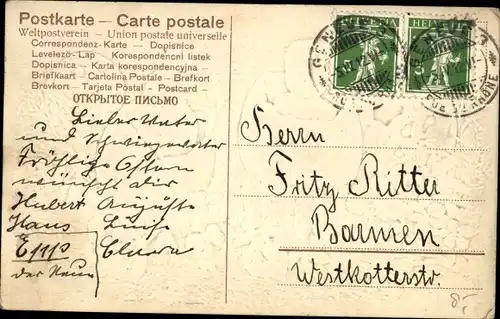 Postkarte — Carte postale
Weltpostverein – Union postale universelle
Correspondenz-Karte – Dopisnice
Levelező-Lap – Korespondenční listek
Dopisnica – Karta korespondencyjna –
Briefkaart – Cartolina Postale – Brefkort
Brevkort – Tarjeta Postal – Postcard –
ОТКРЫТОЕ ПИСЬМО
HELVETIA HELVETIA
RUE DU RHÔNE
Lieber Vater
und Schwiegervater
Fröhlige Ostern
wünscht dir
Hubert Auguste
Hans Luise
Epp Clara
der Neue
Herrn
Fritz Ritter
Barmen
Westkotterstr.
8,-